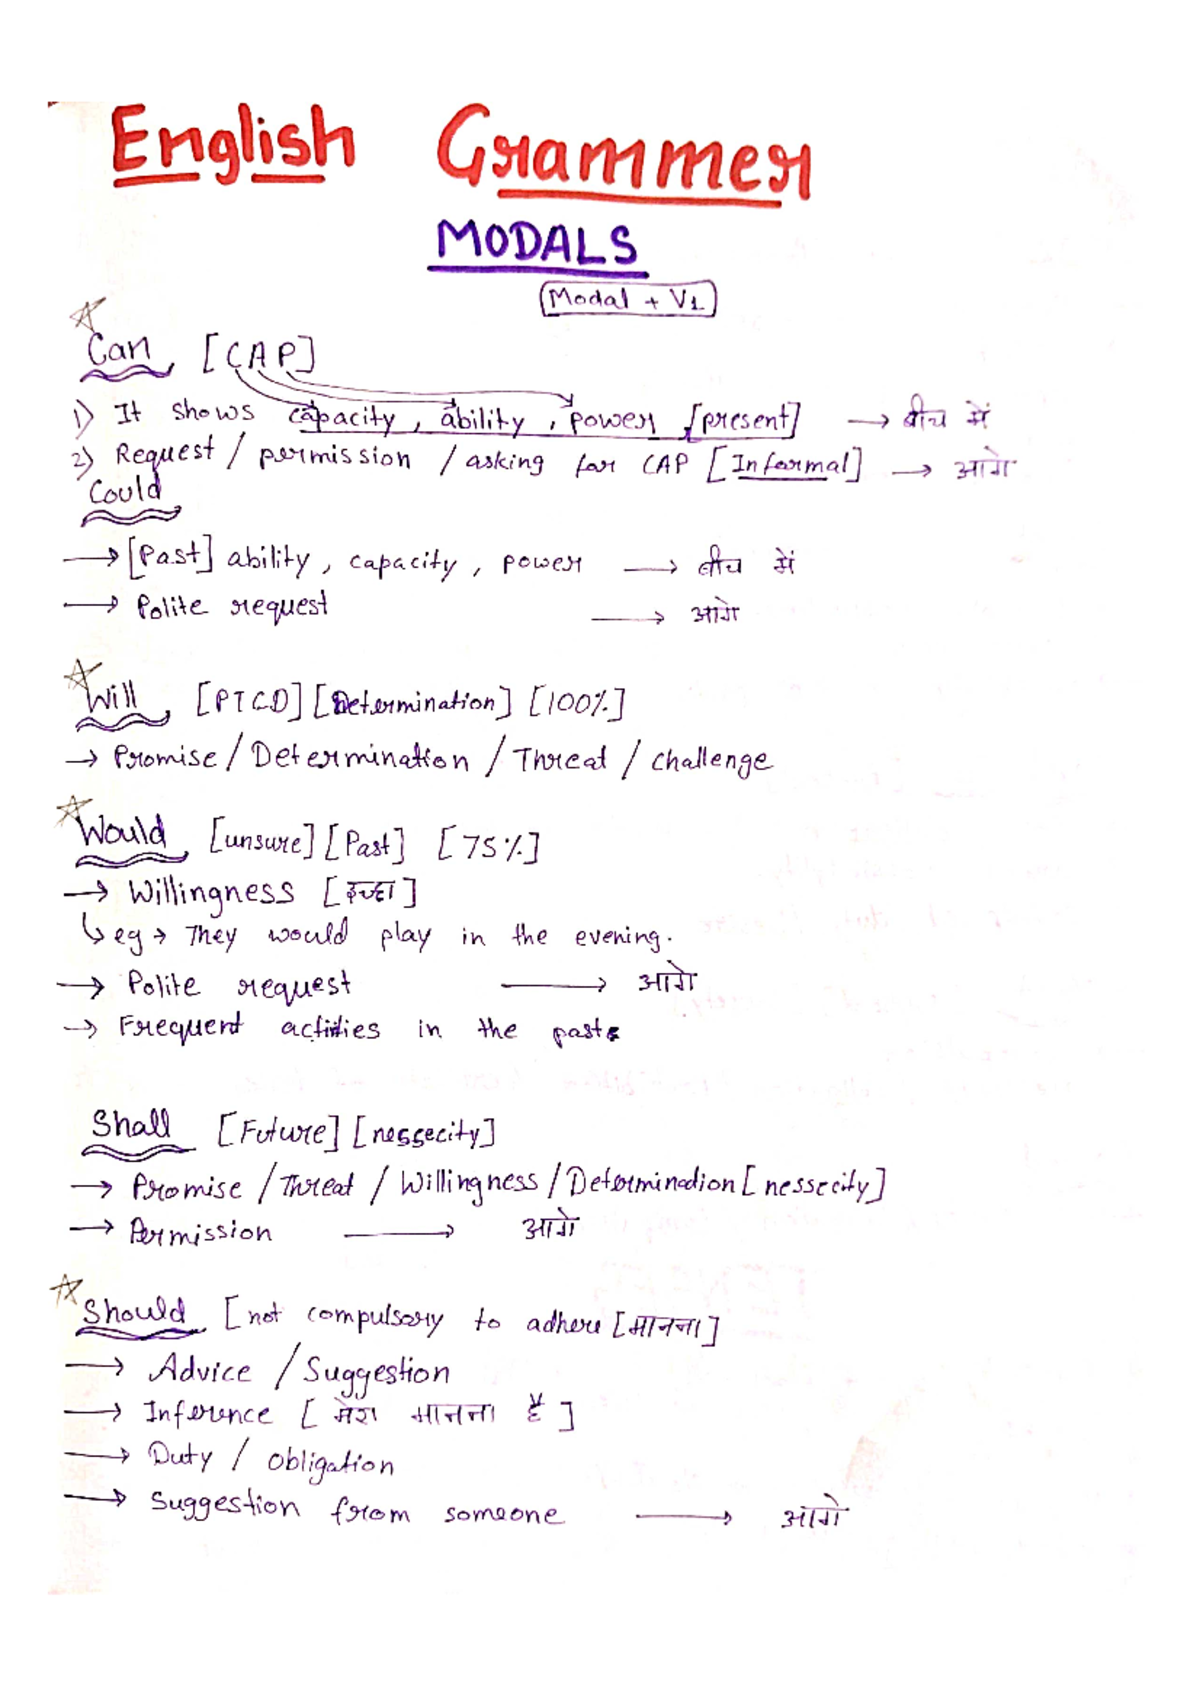 English Grammer
MODALS
Modal + V1
Can [CAP]
1) It shows capacity, ability, power [present] → बीच में
2) Request / permission / asking for CAP [Informal] → आगे
Could
→ [Past] ability, capacity, power → बीच में
→ Polite request → आगे
Will [PTCD] [Determination] [100%]
→ Promise / Determination / Threat / challenge
Would [unsure] [Past] [75%]
→ Willingness [इच्छा]
↳ eg → They would play in the evening.
→ Polite request → आगे
→ Frequent activities in the past
Shall [Future] [nessecity]
→ Promise / Threat / Willingness / Determination [nessecity]
→ Permission → आगे
Should [not compulsory to adhere [मानना]
→ Advice / Suggestion
→ Inference [मेरा मानना है]
→ Duty / obligation
→ Suggestion from someone → आगे